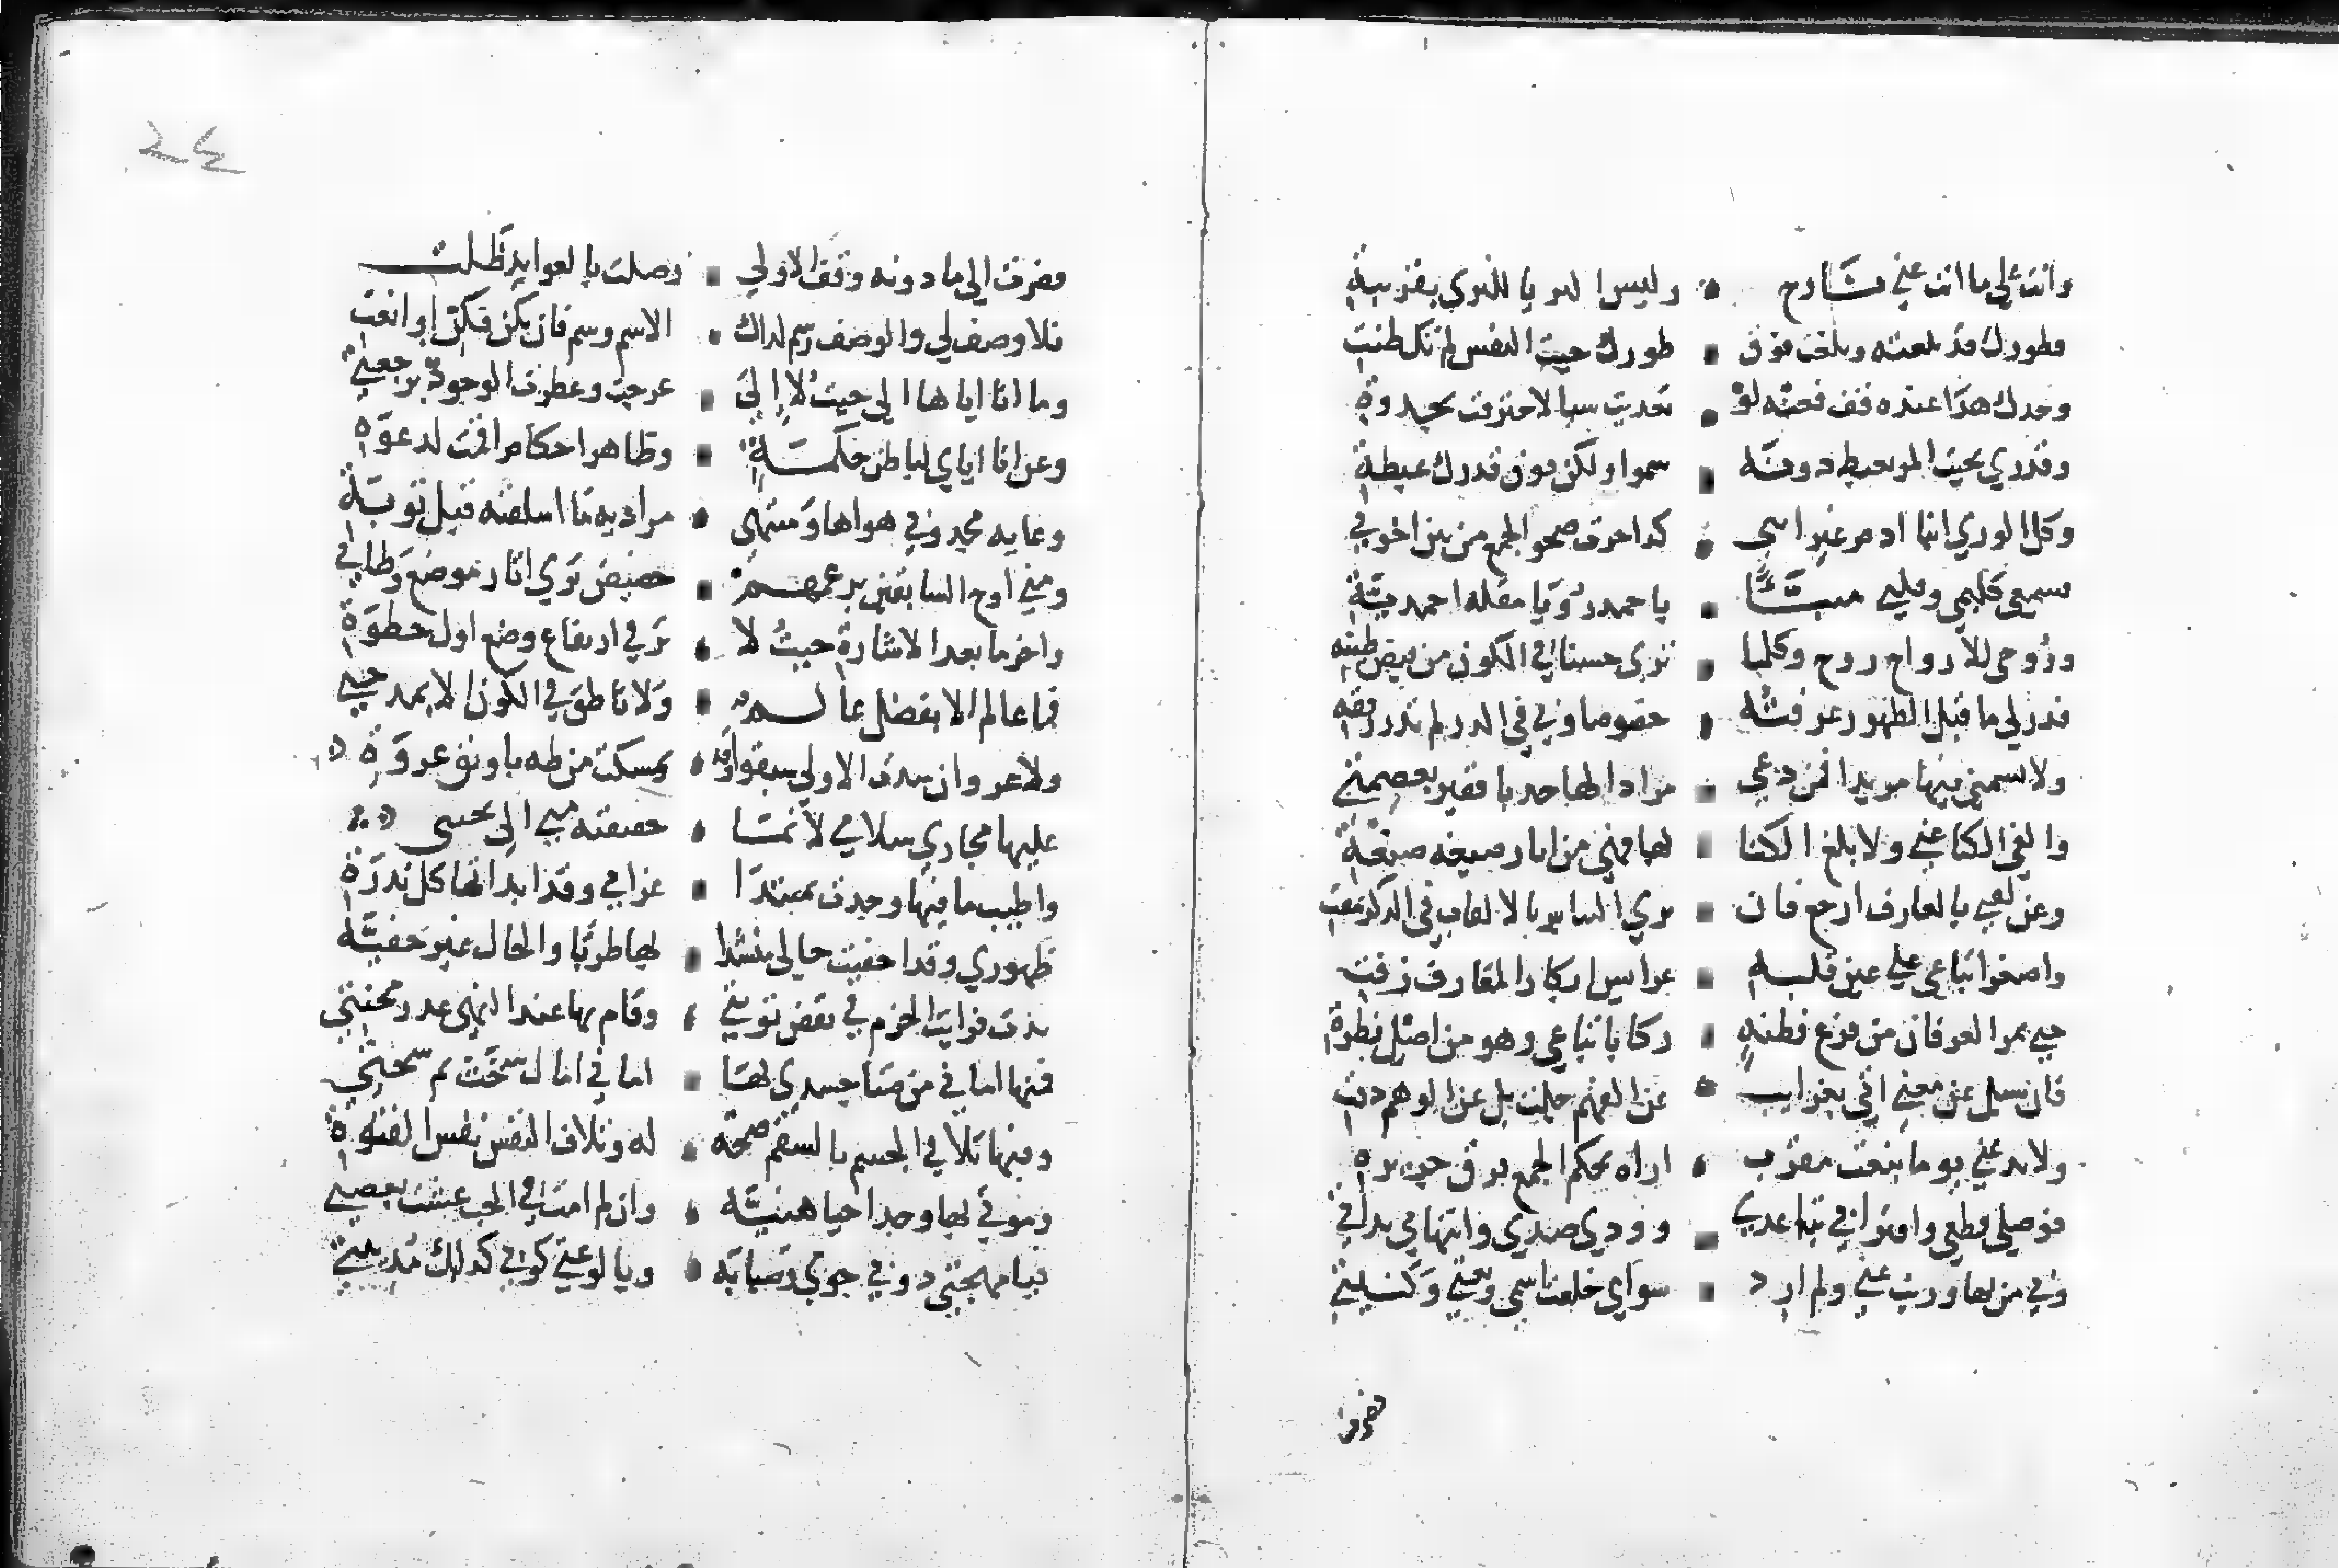 وانت على ما انت عني نازح • وليس الثريا للثرى بقرينة
فطورك قد بلغته وبلغت فوق • طورك حيث النفس لم تك ظنت
وحدك هذا عنده قف فعنه لو • تقدمت شيا لاحترقت بجدوة
وقدري بحيث المرء يغبط دونه • سموا ولكن فوق قدرك غبطة
وكل الورى ابنا ادم غير انني • صحو الجمع من بين اخوتي
فسمعي كليمي وقلبي منبا • باحمد رؤيا مقلة احمدية
وروحي للارواح روح وكلما • ترى حسنا في الكون من فيض طينة
فذر لي ما قبل الظهور عرفته • خصوصا وبي في الذر لم تدر رفقة
ولا تسمني فيها مريدا فمن دعي • مرادا لها جدبا فقير بعصمتي
والغ الكنا عني ولا تلغ الكنا • لها فهي من اثار صيغة صنعة
وعن لقبي بالعارف ارجع فان • ترى التنابز بالالقاب في الذكر تمقت
واصغر اتباعي على عين قلبه • عرايس ابكار المعارف زفت
جنى ثمر العرفان من فرع فطنة • زكا باتباعي وهو من اصل فطرة
فان سيل عن معنى اتى بغرايب • عن الفهم جلت بل عن الوهم دقت
ولا تدعني يوما بنعت مقرب • اراه بحكم الجمع فرق جريرة
فوصلي قطعي واقترابي تباعدي • وودي صدي وانتهاي بداتي
وفي من بها وريت عني ولم ارد • سواي خلعت اسمي ونعتي وكنيتي
فصرت
فصرت الى ما دونه وقف الاولى • وضلت بالعوايد ظلت
فلا وصف لي والوصف رسم لذاك • الاسم وسم فان تكن فكن او انعت
وما انا اياها الى حيث لا الى • عرجت وعطرت الوجود برجعتي
وعن انا اياي لباطن حكمة • وظاهر احكام اقيمت لدعوة
وغاية مجدوبي هواها ومنتهى • مراديه ما اسلفته قبل توبة
ومني اوج السابقين بزعمهم • حضيض ثرى اثار موضع وطاتي
واخر ما بعد الاشارة حيث لا • ترقي ارتفاع وضع اول خطوة
فما عالم الا بفضل عالم • ولا ناطق في الكون الا بمدحتي
ولا غرو ان سدت الاولى سبقوا وقد • تمسكت من طه باوثق عروة
عليها مجازي سلامي لانما • حقيقته مني الي تحيتي
واطيب ما فيها وجدت بمبتدا • غرامي وقد ابدا لها كل ندرة
ظهوري وقد اخفيت حالي منشدا • لها طربا والحال غير خفية
بدت فرايت الحزم في نقض توبتي • وقام بها عند النهى عذر محنتي
فمنها اماني من ضنا جسدي لها • اماني امال سخت ثم شحت
وفيها تلافي الجسم بالسقم صحة • له وتلاف النفس نفس الفتوة
وموتي لها وجدا حياة هنية • وان لم امت في الحب عشت بغصتي
فيا مهجتي ذوبي جوى وصبابة • ويا لوعتي كوني كذلك مذيبتي